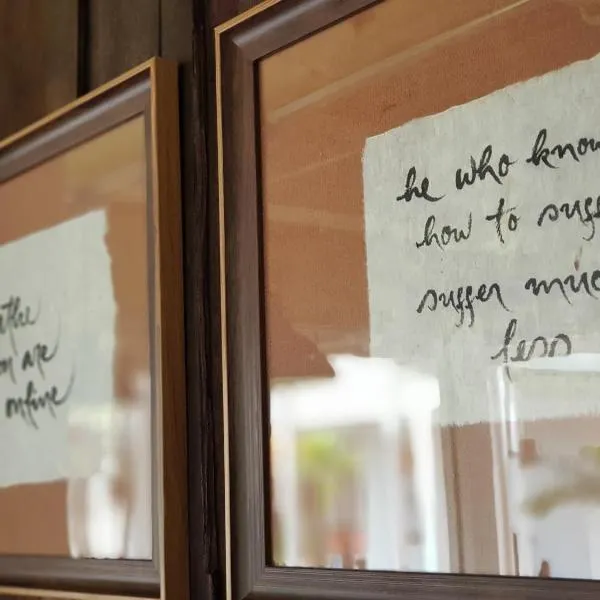 athe
ou are
online
he who know
how to suff
suffer muc
less